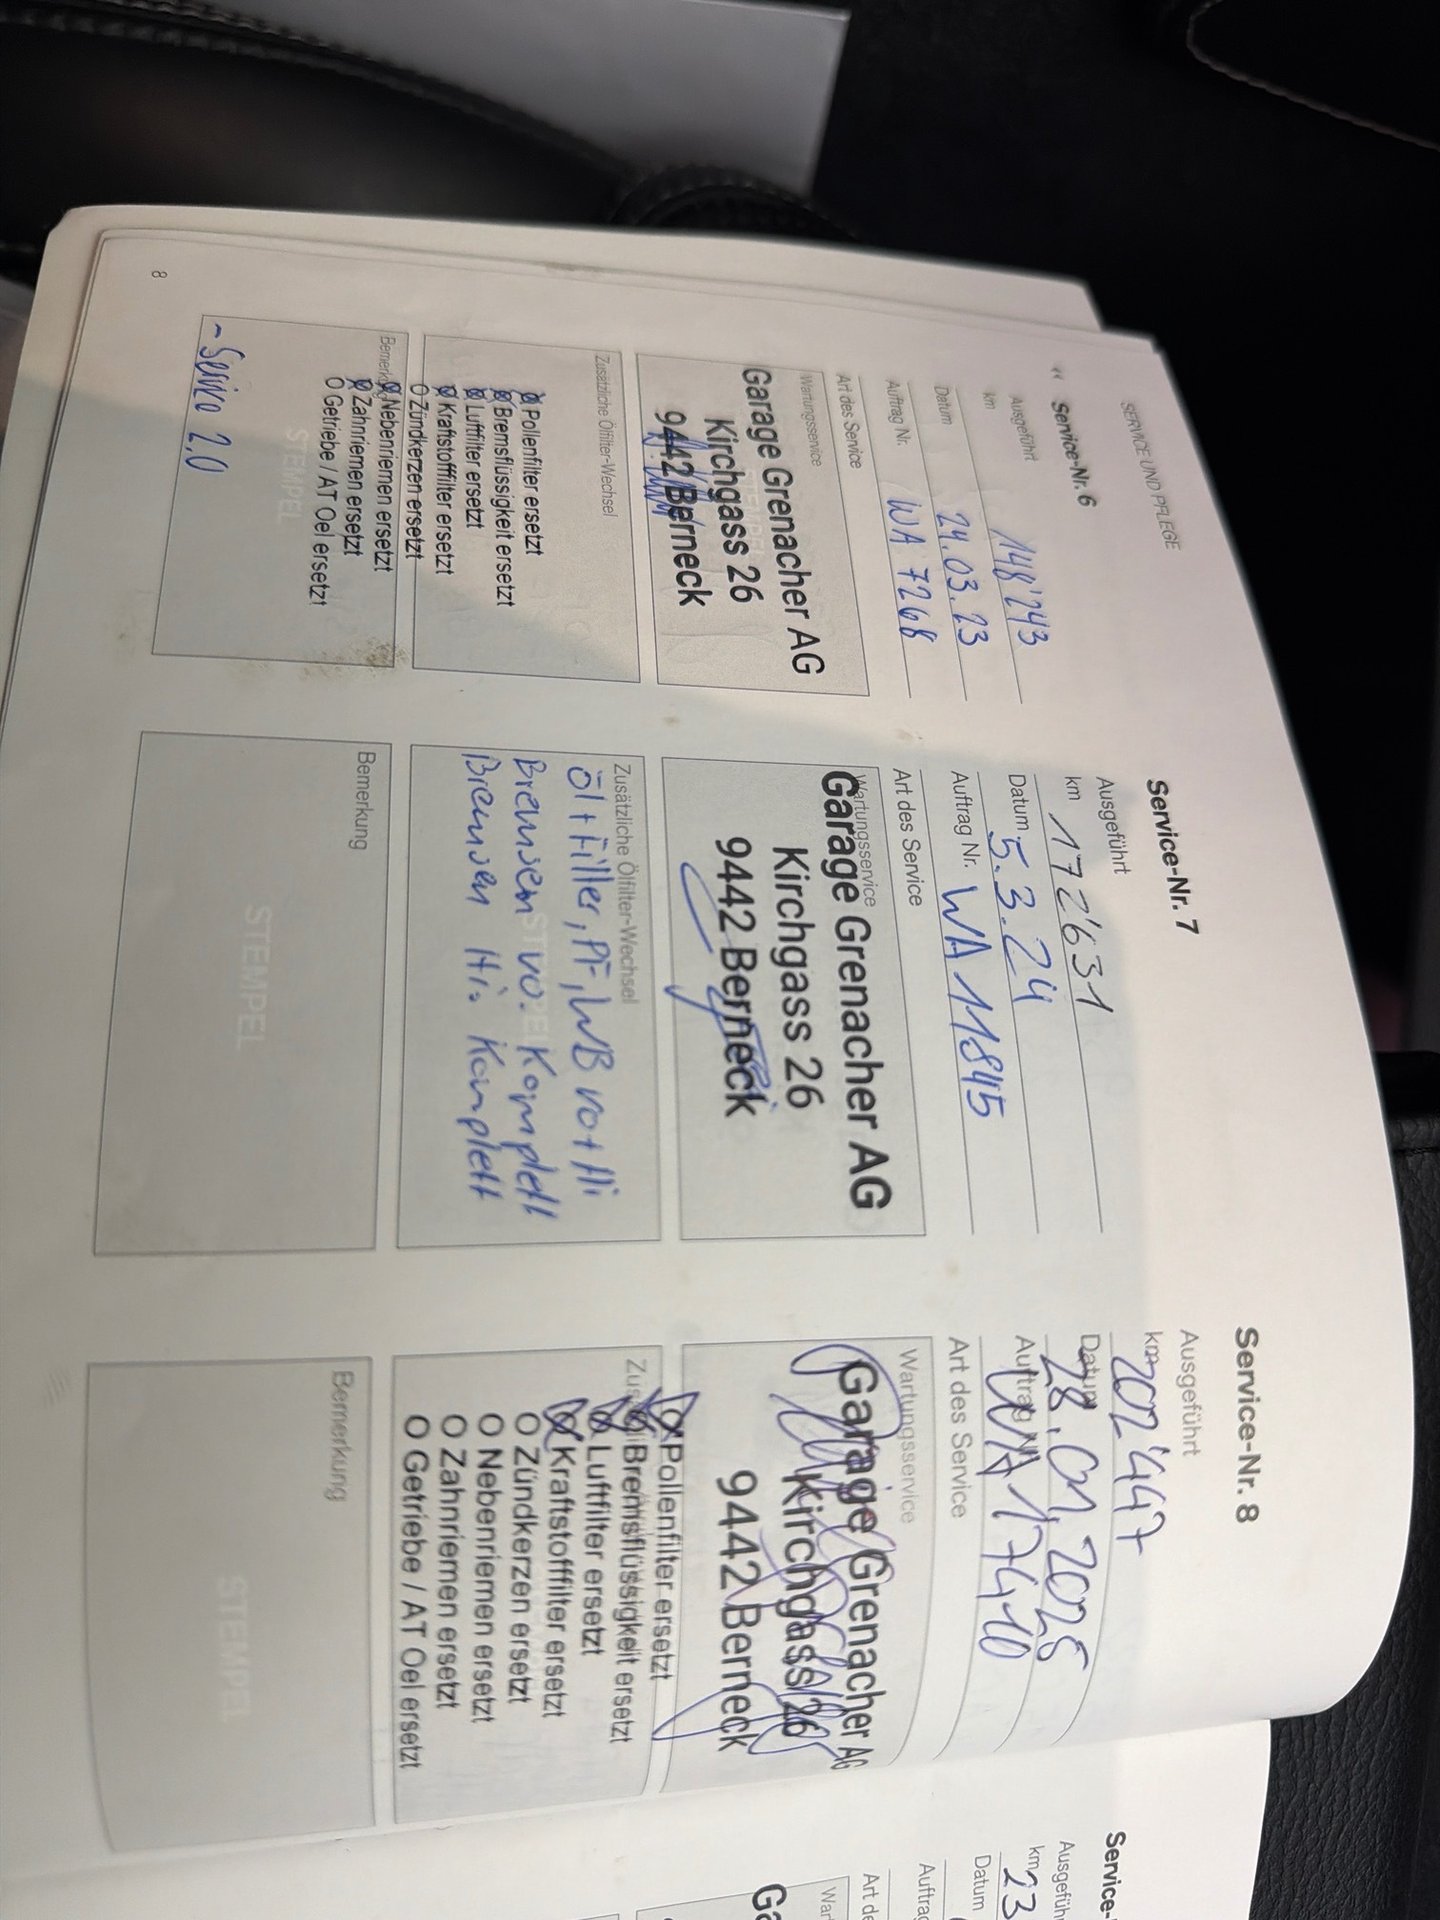 SERVICE UND PFLEGE
« Service-Nr. 6
Ausgeführt
km 148'243
Datum 24.03.23
Auftrag Nr. WA 7268
Art des Service
Wartungsservice
Garage Grenacher AG
Kirchgass 26
9442 Berneck
Zusätzliche Ölfilter-Wechsel
Pollenfilter ersetzt
Bremsflüssigkeit ersetzt
Luftfilter ersetzt
Kraftstofffilter ersetzt
O Zündkerzen ersetzt
Nebenriemen ersetzt
Zahnriemen ersetzt
O Getriebe / AT Oel ersetzt
STEMPEL
- Service 2.0
8
Service-Nr. 7
Ausgeführt
km 172'631
Datum 5.3.24
Auftrag Nr. WA 11845
Art des Service
Wartungsservice
Garage Grenacher AG
Kirchgass 26
9442 Berneck
Zusätzliche Ölfilter-Wechsel
Öl + Filter, PF, WB vo + Hi
Bremsen vo. Komplett
Bremsen Hi. Komplett
Bemerkung
STEMPEL
Service-Nr. 8
Ausgeführt
km 202'447
Datum 28.01.2025
Auftrag Nr. WA 17410
Art des Service
Wartungsservice
Garage Grenacher AG
Kirchgass 26
9442 Berneck
Pollenfilter ersetzt
Bremsflüssigkeit ersetzt
Luftfilter ersetzt
Kraftstofffilter ersetzt
O Zündkerzen ersetzt
O Nebenriemen ersetzt
O Zahnriemen ersetzt
O Getriebe / AT Oel ersetzt
Bemerkung
STEMPEL
Service-
Ausgeführ
km 23
Datum
Auftrag
Art de
War
Ga